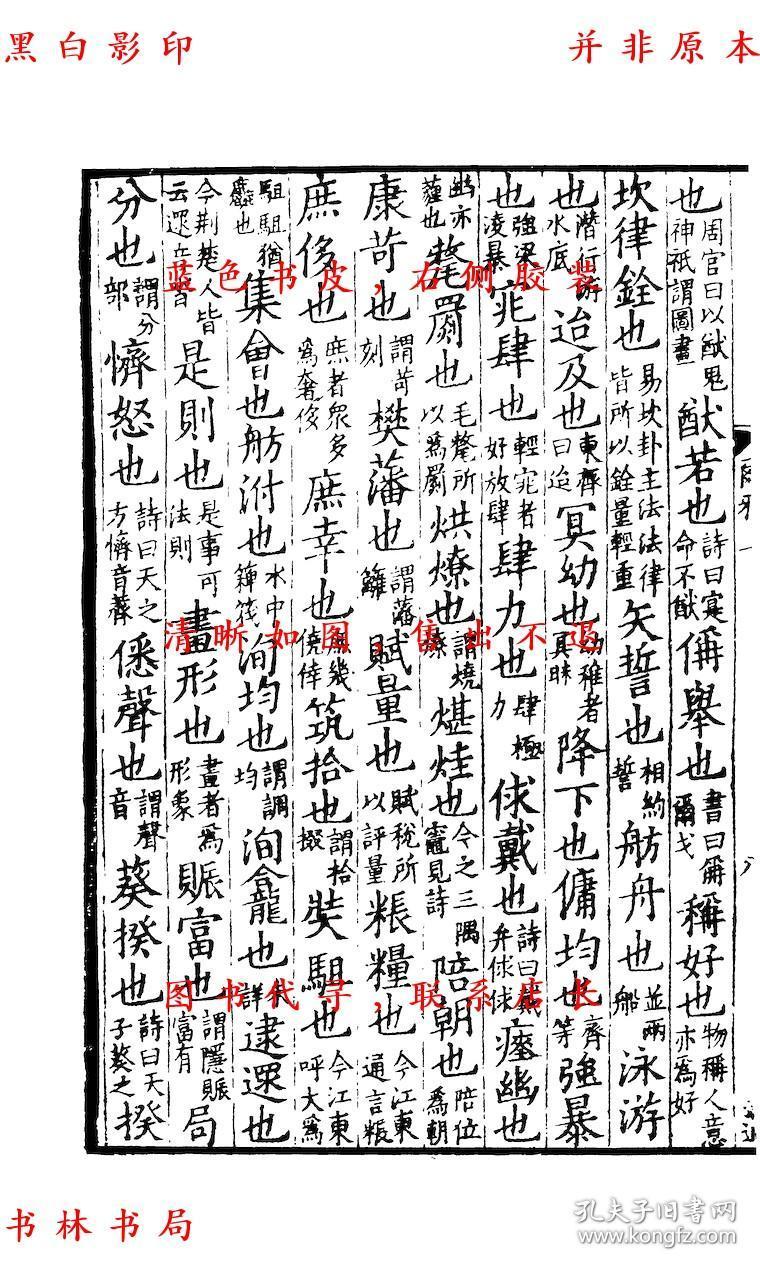 黑白影印
并非原本
也周官曰以猷鬼神祇謂圖畫猷若也詩曰寔命不猷偁舉也書曰偁爾戈稱好也物稱人意亦為好
坎律銓也易坎卦主法法律皆所以銓量輕重矢誓也相約誓舫舟也並兩船泳游
也潛行游水底迨及也東齊曰迨冥幼也幼稚者冥昧降下也傭均也齊等強暴
也強梁凌暴窕肆也輕窕者好放肆肆力也肆極力俅戴也詩曰戴弁俅俅瘞幽也
幽亦薶也氂罽也毛氂所以為罽烘燎也謂燒燎煁烓也今之三隅竈見詩陪朝也陪位為朝
康苛也謂苛刻樊藩也謂藩籬賦量也賦稅所以評量粻糧也今江東通言粻
庶侈也庶者眾多為奢侈庶幸也庶幾僥倖筑拾也謂拾掇奘駔也今江東呼大為
駔駔猶麤也集會也舫泭也水中箄筏洵均也謂調均洵龕也詳逮遝也
今荊楚人皆云遝音沓是則也是事可法則畫形也畫者為形象賑富也謂隱賑富有局
分也謂分部懠怒也詩曰天之方懠音薺僁聲也謂聲音葵揆也詩曰天子葵之揆
爾雅
蓝色书皮，右侧胶装
清晰如图，售出不退
图书代寻，联系店长
书林书局
孔夫子旧书网
www.kongfz.com